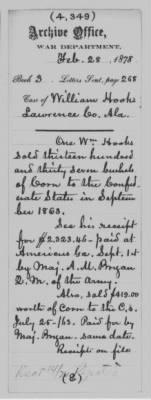 (4,349)
Archive Office,
WAR DEPARTMENT,
Feb. 28, 1878
Book 3 Letters Sent, page 268
Case of William Hooks
Lawrence Co. Ala.
One Wm Hooks
sold thirteen hundred
and thirty seven bushels
of Corn to the Confed-
erate States in Septem
ber 1863.
See his receipt
for $2,323.46 - paid at
Americus Ga. Sept. 1st
by Maj. A. M.
Q. M. of the Army.
Also, sold $419.00
worth of Corn to the C.S.
July 25-/63. Paid for by
Maj. same date.
Receipts on file
(8)